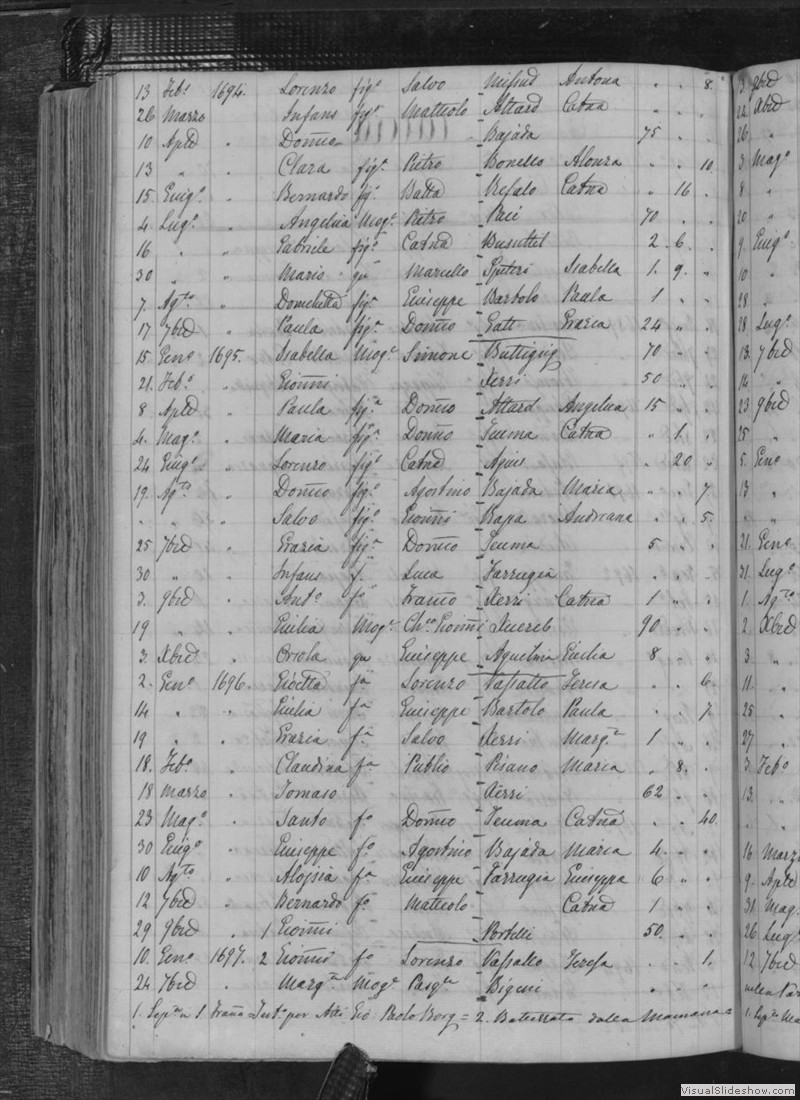 13 Feb.º 1694. Lorenzo fig.º Salvo Mifsud Antona . . 8.
26 Marzo Infans fig.º Matteolo Attard Catnã . . .
10 Aplẽ . Dom̃co Bajada 75 . .
13 " . Clara fig.ª Pietro Bonello Alonza . . 10.
15. Giug.º . Bernardo fig.º Batta Refalo Catnã " 16 .
4. Lug.º " Angelica Mog.e Pietro 70 . .
16 " " Gabriele fig.º Catnõ Busuttil 2. 6. .
30 " " Mario qu Marcello Sputeri Isabella 1. 9. "
7. Ag.to " fig.ª Giuseppe Bartolo Paula 1 " .
17 7brẽ " Paula fig.ª Dom̃co Gatt Grazia 24 " .
15. Gen.º 1695. Isabella Mog.e Simone Buttigieg 70 " .
21. Feb.º . Gioñni Xerri 50 . .
8 Aplẽ . Paula fig.ª Dom̃co Attard Angelica 15 " .
4. Mag.º . Maria fig.ª Dom̃co Teuma Catnã " 1. .
24 Giug.º . Lorenzo fig.º Catnõ Agius . 20 "
19. Ag.to . Dom̃co fig.º Agostino Bajada Maria " . 7.
" " . Salvo fig.º Gioñni Rapa Andreana . . 5.
25 7brẽ . Grazia fig.ª Dom̃co Teuma 5 " .
30 " . Infans f. Luca Farrugia . . .
3. 9brẽ . Ant.º f.º Franco Xerri Catnã 1 " .
19 " . Giulia Mog.e Ch.co Gioñni Xuereb 90 . .
3. Xbrẽ . Orsola qu Giuseppe Agustina Giulia 8 " "
2. Gen.º 1696. f.ª Lorenzo Vassallo Teresa . . 6.
14 " . Giulia f.ª Giuseppe Bartolo Paula . . 7.
19 " . Grazia f.ª Salvo Xerri Marg.ta 1 " .
18. Feb.º . Claudina f.ª Publio Pisano Maria " 8. .
18 Marzo . Tomaso Xerri 62 . .
23 Mag.º . Santo f.º Dom̃co Teuma Catnã . . 40.
30 Giug.º . Giuseppe f.º Agostino Bajada Maria 4. . .
10 Ag.to . Alojsia f.ª Giuseppe Farrugia Giuseppa 6 " .
12 7brẽ . Bernardo f.º Matteolo Catnã 1 . .
29 9brẽ . 1 Gioñni Portelli 50. . .
10. Gen.º 1697. 2 Gioñni f.º Lorenzo Vassallo Teresa . . 1.
24 7brẽ . Marg.ta Mog.e Pasq.le Bigeni . . .
1. per Atti Gio Paolo Borg = 2. Battezzato dalla Mammana =
3 9brẽ
22 Xbrẽ
26 "
3 Mag.º
8 "
20 "
9. Giug.º
10 "
28 "
28 Lug.º
13. 7brẽ
14 "
23 9brẽ
25 "
5. Gen.º
13 "
21. Gen.º
31. Lug.º
1. Ag.to
2 Xbrẽ
3 "
11. "
25 "
27 "
3. Feb.º
13. "
16 Marzo
9. Aplẽ
31 Mag.
26 Lug.º
12 7brẽ
VisualSlideshow.com